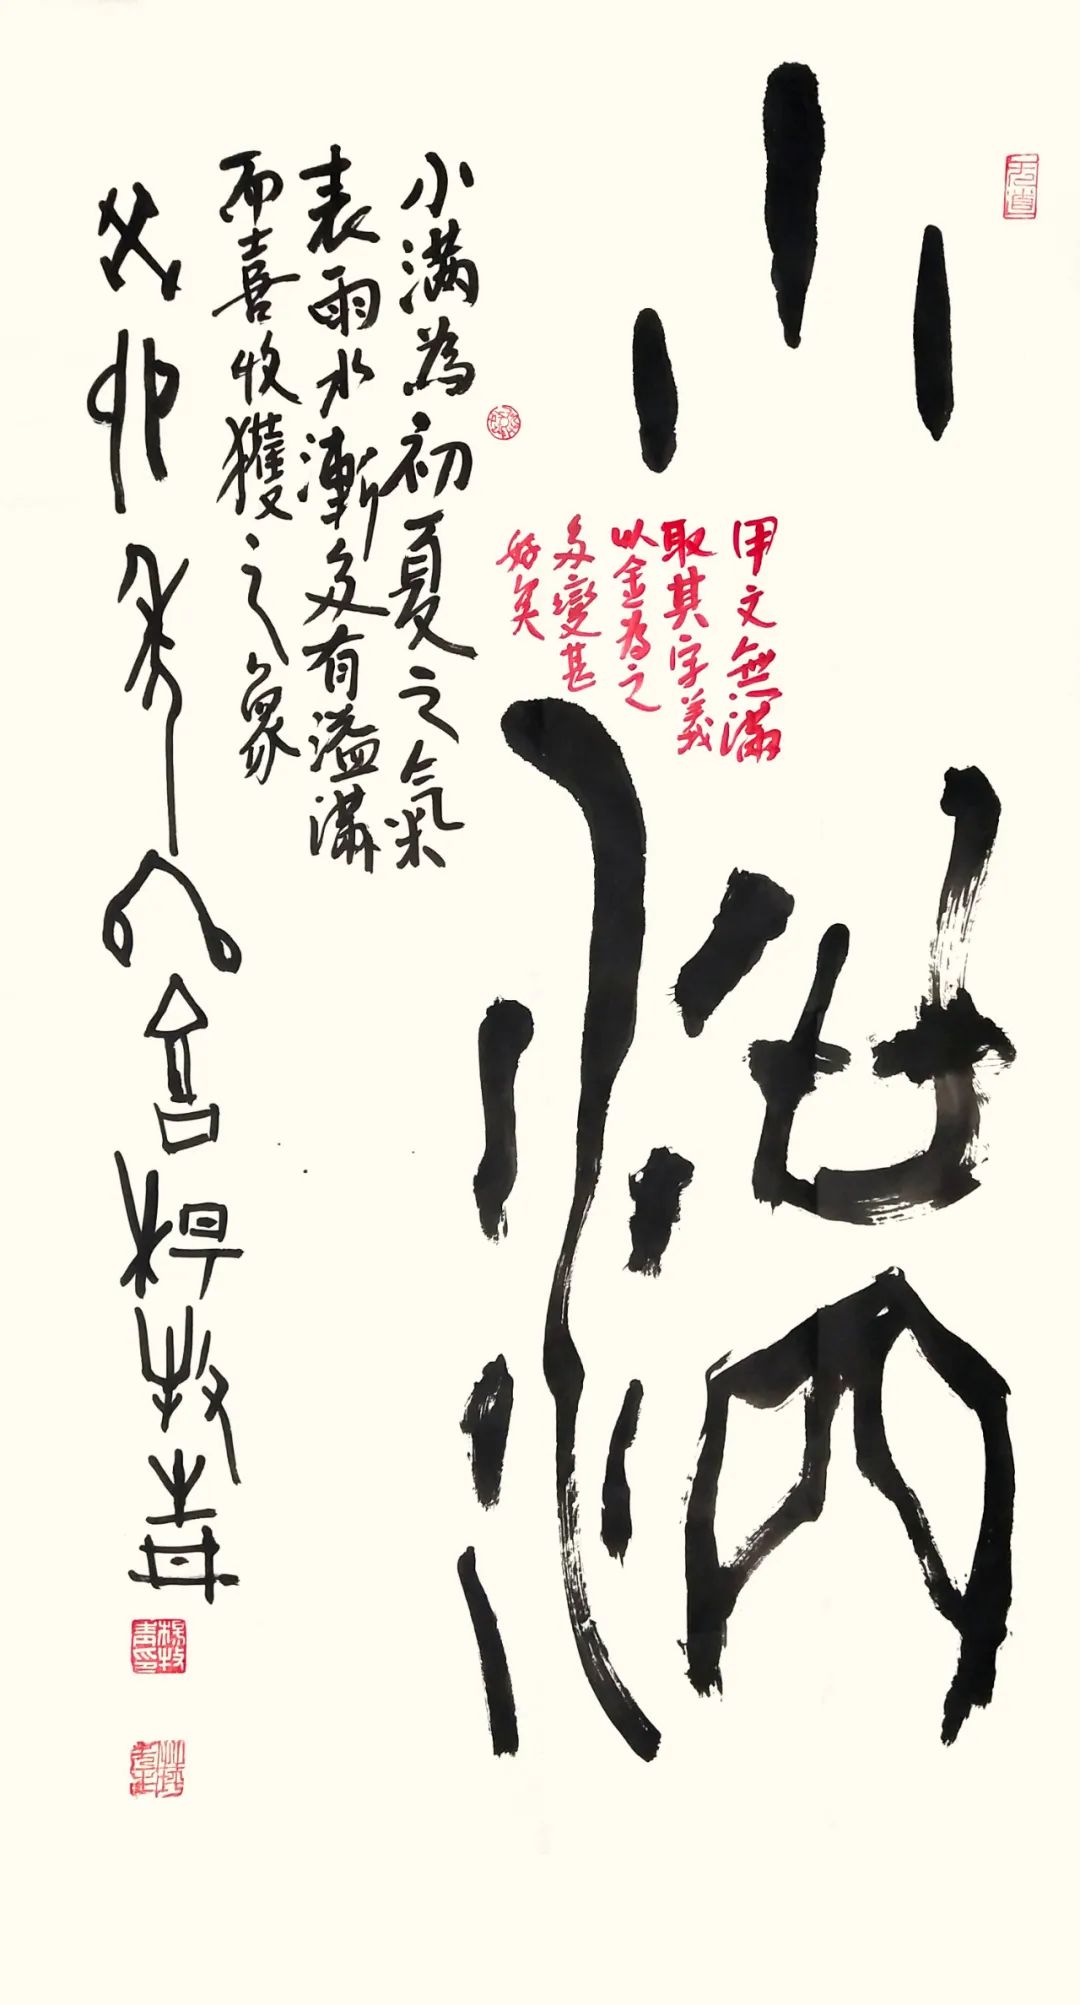 小滿
甲文無滿
取其字義
以金為之
多變甚
好矣
小滿為初夏之氣
表雨水漸多有溢滿
而喜收獲之象
癸卯年楊牧青
楊牧青印